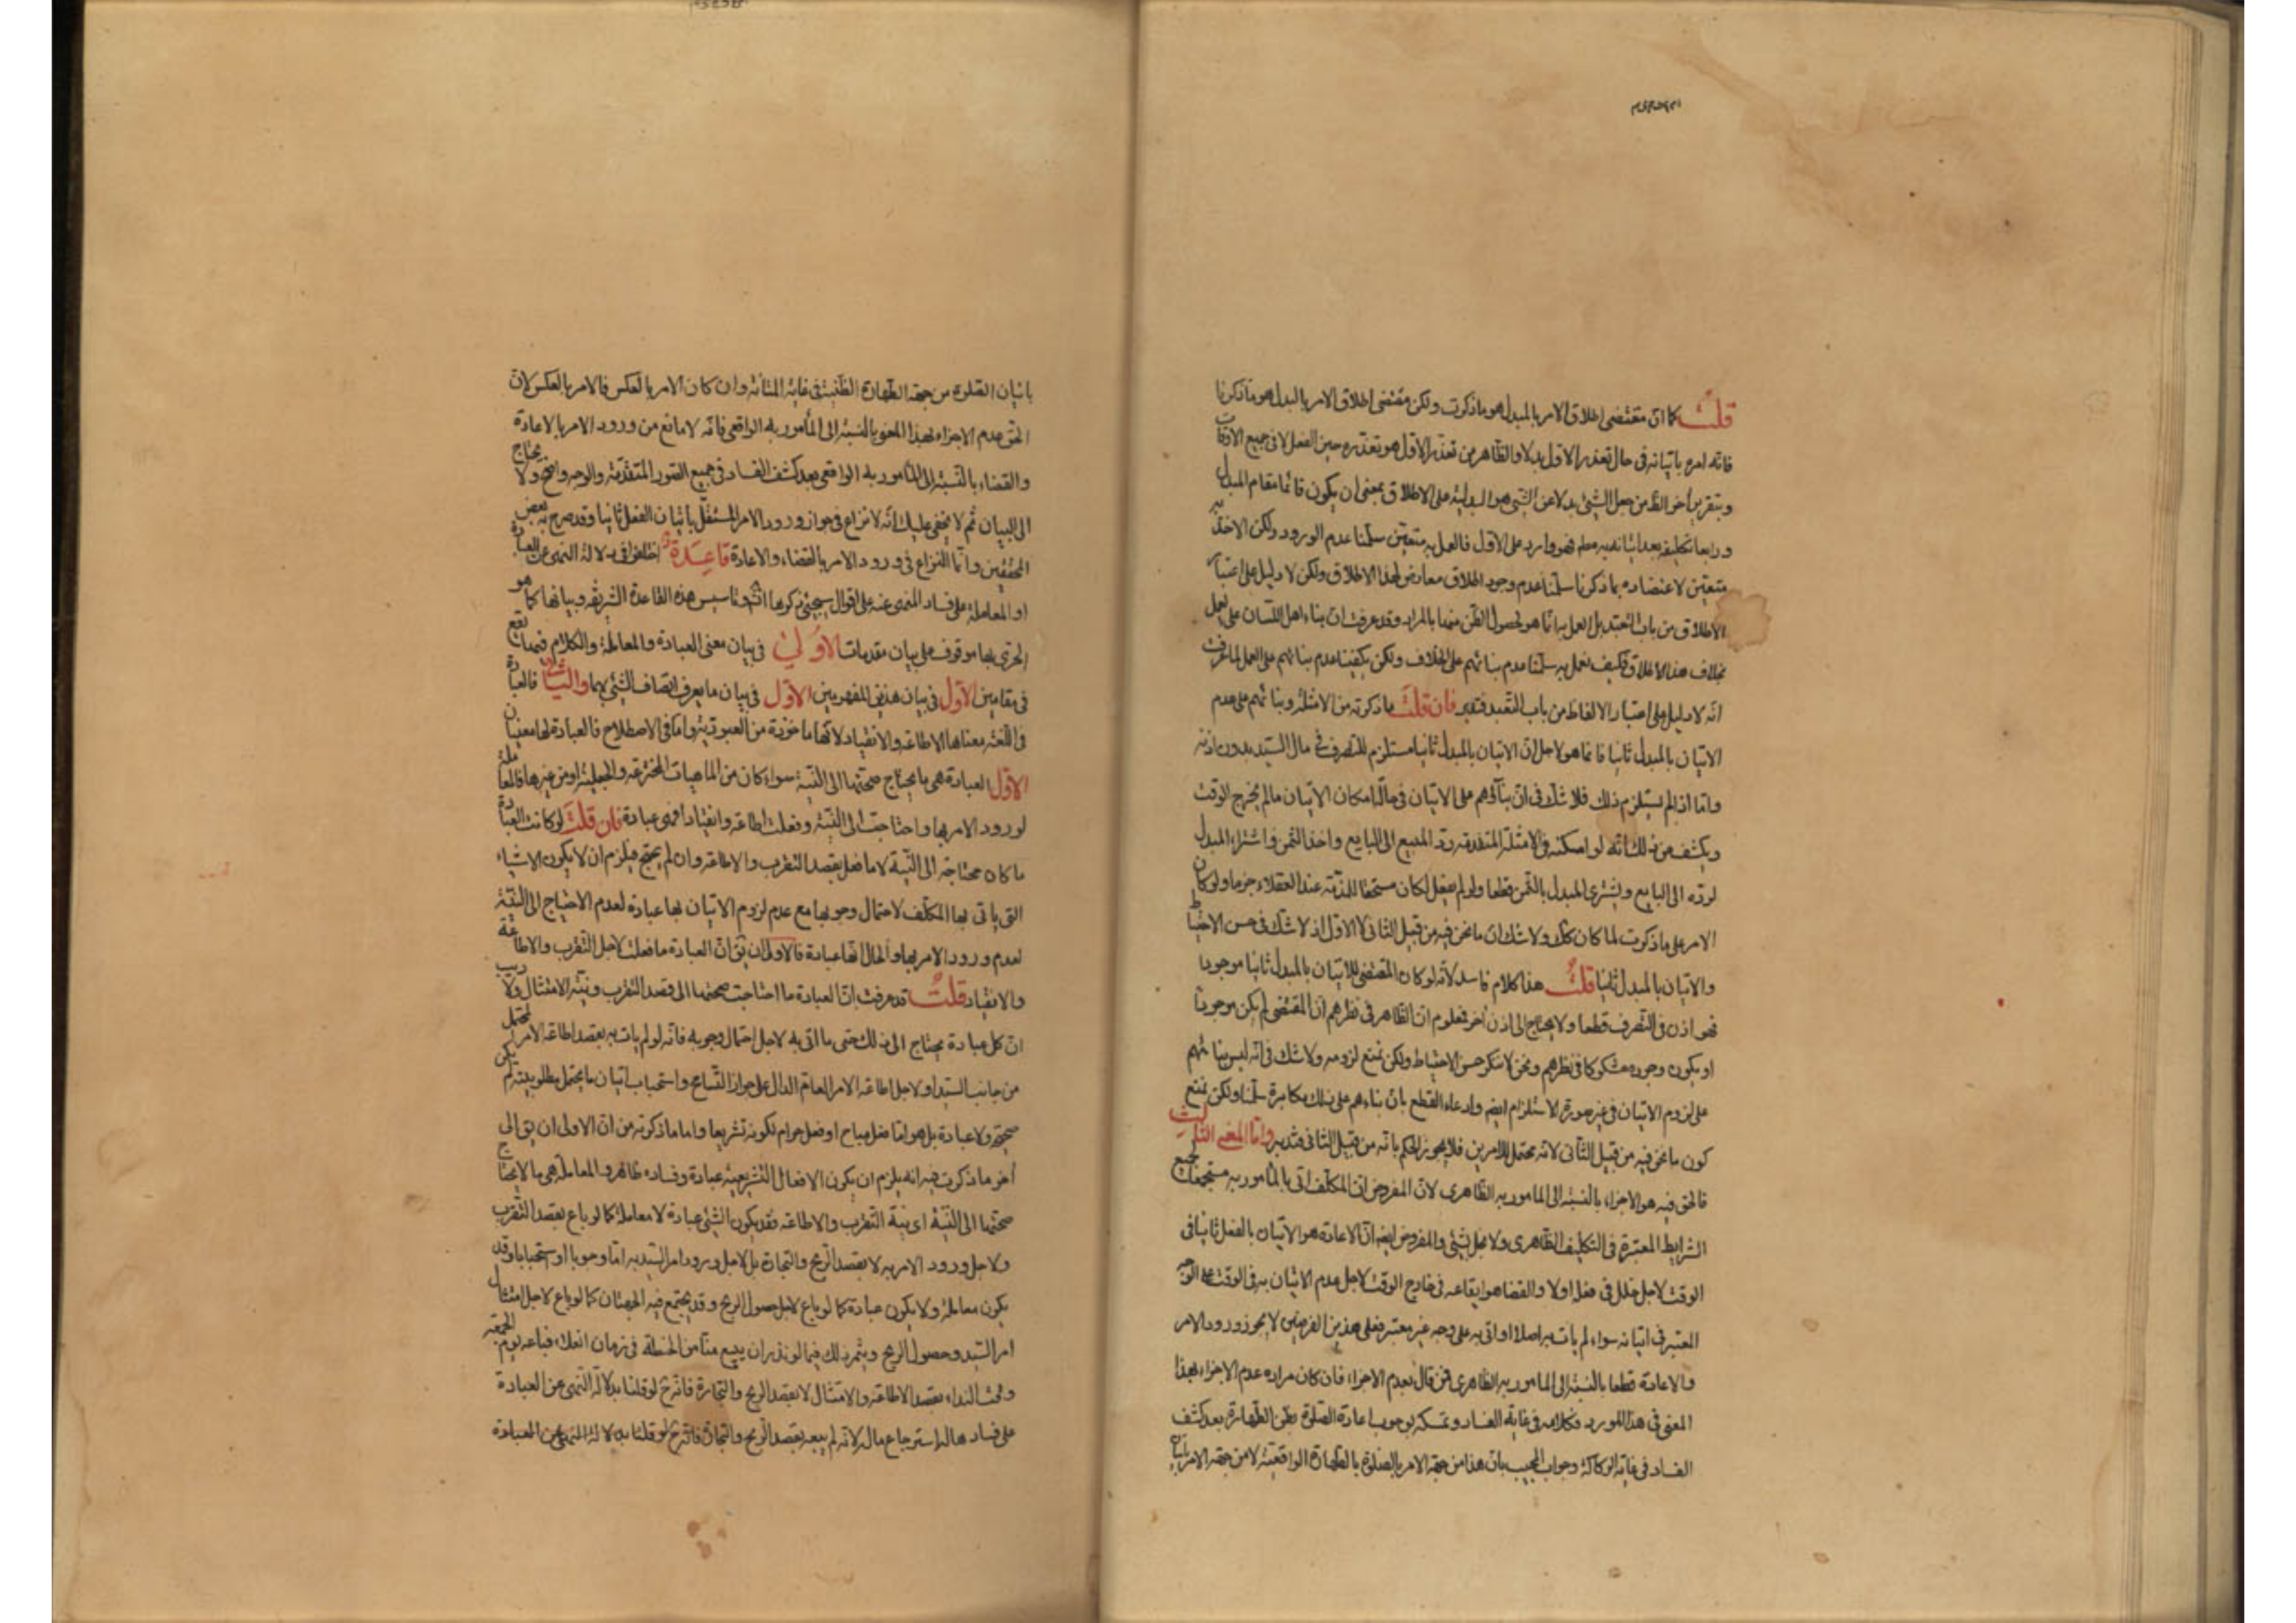 قلت كما ان مقتضى اطلاق الامر بالمبدل هو ما ذكرت ولكن مقتضى اطلاق الامر بالبدل هو ما ذكرنا
فانه امره باتيانه فى حال تعذر الاول بدلا والظاهر من تعذر الاول هو تعذره حين الفعل لا فى جميع الاوقات
وبتقرير اخر الظ من جعل الشئ بدلا عن الشئ هو البدلية على الاطلاق بمعنى ان يكون قائما مقام المبدل
ورابعا تكليفه بعد اتيانه غير معلم فهو وارد على الاول فالعمل به متعين سلمنا عدم الورود ولكن الاخذ به
متعين لاعتضاده بما ذكرنا سلمنا عدم وجود اطلاق معارض لهذا الاطلاق ولكن لا دليل على اعتبار
الاطلاق من باب التعبد بل العمل به انما هو لحصول الظن منها بالمراد وقد عرفت ان بناء اهل اللسان على العمل
بخلاف هذا الاطلاق فكيف نعمل به سلمنا عدم بنائهم على الخلاف ولكن يكفينا عدم بنائهم على العمل لما عرفت
انه لا دليل على اعتبار الالفاظ من باب التعبد فتدبر فان قلت ما ذكرته من الامثلة وبنائهم على عدم
الاتيان بالمبدل ثانيا فانما هو لاجل ان الاتيان بالمبدل ثانيا مستلزم للتصرف فى مال السيد بدون اذنه
واما اذا لم يستلزم ذلك فلا شك فى ان بنائهم على الاتيان فى حال امكان الاتيان ما لم يخرج الوقت
ويكشف عن ذلك انه لو امكنه فى الامثلة المتقدمة رد المبيع الى البايع واخذ الثمن واشتراء المبدل
لرده الى البايع ويشترى المبدل بالثمن قطعا ولو لم يفعل لكان مستحقا للمذمة عند العقلاء جزما ولو كان
الامر على ما ذكرت لما كان كك ولا شك ان ما نحن فيه من قبيل الثانى لا الاول اذ لا شك فى حسن الاحتياط
والاتيان بالمبدل ثانيا قلت هذا كلام فاسد لانه لو كان المقتضى للاتيان بالمبدل ثانيا موجودا
فهو اذن فى التصرف قطعا ولا يحتاج الى اذن اخر فمعلوم ان الظاهر فى نظرهم ان المقتضى لم يكن موجودا
او يكون وجوده مشكوكا فى نظرهم ونحن لا ننكر حسن الاحتياط ولكن نمنع لزومه ولا شك فى انه ليس بنائهم
على لزوم الاتيان فى غير صورة الاستلزام ايضم وادعاء القطع بان بناءهم على ذلك مكابرة سلمنا ولكن نمنع
كون ما نحن فيه من قبيل الثانى لانه محتمل للامرين فلا يجوز الحكم بانه من قبيل الثانى فتدبر واما المعنى الثالث
فالحق فيه هو الاجزاء بالنسبة الى المامور به الظاهرى لان المفروض ان المكلف اتى بالمأمور به مستجمعا لجميع
الشرايط المعتبرة فى التكليف الظاهرى ولا يخل بشئ والمفروض ايضه ان الاعادة هو الاتيان بالفعل ثانيا فى
الوقت لاجل خلل فى فعله اولا والقضا هو ايقاعه فى خارج الوقت لاجل عدم الاتيان به فى الوقت على الوجه
المعتبر فى اتيانه سواء لم يات به اصلا او اتى به على وجه غير معتبر فعلى هذين الفرضين لا يجوز ورود الامر
والاعادة قطعا بالنسبة الى المامور به الظاهرى فمن قال بعدم الاجزاء فان كان مراده عدم الاجزاء بهذا
المعنى فى هذا المورد فكلامه فى غاية الفساد وتمسكه بوجوب اعادة الصلوة بظن الطهارة بعد كشف
الفساد فى غاية الركاكة وجواب المجيب بان هذا من جهة الامر بالصلوة بالطهارة الواقعية لا من جهة الامر باتيان
باتيان الصلوة من جهة الطهارة الظنية فى غاية المتانة وان كان الامر بالعكس فالامر بالعكس لان
الحق عدم الاجزاء بهذا المعنى بالنسبة الى المأمور به الواقعى فانه لا مانع من ورود الامر بالاعادة
والقضاء بالنسبة الى المأمور به الواقعى بعد كشف الفساد فى جميع الصور المتقدمة والوجه واضح ولا يحتاج
الى البيان ثم لا يخفى عليك انه لا نزاع فى جواز ورود الامر المستقل باتيان الفعل ثانيا وقد صرح به بعض
المحققين وانما النزاع فى ورود الامر بالقضاء والاعادة قاعدة اختلفوا فى دلالة النهى عن العبادة
او المعاملة على فساد المنهى عنه على اقوال سيجئ ذكرها انش وتاسيس هذه القاعدة الشريفة وبيانها كما هو
الحرى بها موقوف على بيان مقدمات الاولى فى بيان معنى العبادة والمعاملة والكلام فيهما يقع
فى مقامين الاول فى بيان هذين المفهومين الاول فى بيان ما يعرف اتصاف الشئ بهما والثانى فالعبادة
فى اللغة معناها الاطاعة والانقياد لانها ماخوذة من العبودية واما فى الاصطلاح فالعبادة لها معنيان
الاول العبادة هى ما يحتاج صحتها الى النية سواء كان من الماهيات المخترعة والجعلية او من غيرها فالمعاملة
لو ورد الامر بها واحتاجت الى النية وفعلت اطاعة وانقيادا فهى عبادة فان قلت لو كانت العبادة
ما كان محتاجة الى النية لا ما فعل بقصد التقرب والاطاعة وان لم يحتج فيلزم ان لا يكون الاشياء
التى ياتى بها المكلف لاحتمال وجوبها مع عدم لزوم الاتيان بها عبادة لعدم الاحتياج الى النية
لعدم ورود الامر بها والحال انها عبادة فالاولى ان يق ان العبادة ما فعلت لاجل التقرب والاطاعة
والانقياد قلت قد عرفت ان العبادة ما احتاجت صحتها الى قصد التقرب ونية الامتثال ولا ريب
ان كل عبادة يحتاج الى ذلك حتى ما اتى به لاجل احتمال وجوبه فانه لو لم يات به بقصد اطاعة الامر المحتمل
من جانب السيد او لاجل اطاعة الامر العام الدال على جواز التسامح واستحباب اتيان ما يحتمل مطلوبيته لم يكن
صحيحة ولا عبادة بل هو اما فعل مباح او فعل حرام لكونه تشريعا واما ما ذكرته من ان الاولى ان يق الى
اخر ما ذكرت فيه انه يلزم ان يكون الافعال التشريعية عبادة وفساده ظاهر والمعاملة هى ما لا يحتاج
صحتها الى النية اى نية التقرب والاطاعة فقد يكون الشئ عبادة لا معاملة كما لو باع بقصد التقرب
ولاجل ورود الامر به لا بقصد الربح والتجارة بل لاجل ورود امر السيد به اما وجوبا او استحبابا وقد
يكون معاملة ولا يكون عبادة كما لو باع لاجل حصول الربح وقد يجتمع فيه الجهتان كما لو باع لاجل امتثال
امر السيد وحصول الربح ويثمر ذلك فيما لو نذر ان يبيع منا من الحنطة فى زمان انعك فباعه يوم الجمعة
وقت النداء بقصد الاطاعة والامتثال لا بقصد الربح والتجارة فانه ح لو قلنا بدلالة النهى عن العبادة
على فساد هاله استرجاع ماله لانه لم يبعه بقصد الربح والتجارة فانه ح لو قلنا بدلالة النهى عن العبادة